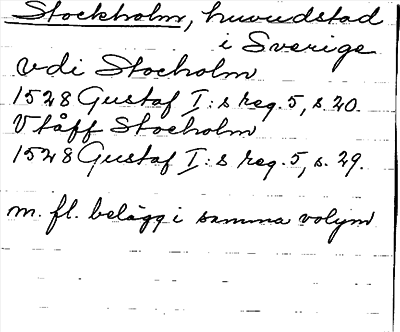 Stockholm, huvudstad
i Sverige
vdi Stocholm
1528 Gustaf I:s reg. 5, s. 20.
Vtåff Stocholm
1528 Gustaf I:s reg. 5, s. 29.
m. fl. belägg i samma volym